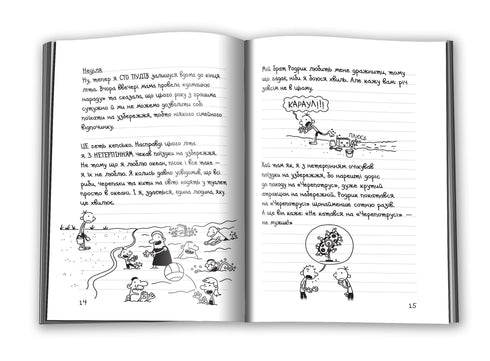 Неділя
Ну, тепер я СТО ПУДІВ залишуся вдома до кінця
літа. Вчора ввечері мама провела «домашню
нараду» та сказала, що цього року з грошима
сутужно й ми не можемо дозволити собі
поїхати на узбережжя, тобто ніякого сімейного
відпочинку.
ЦЕ геть кепсько. Насправді цього літа
я З НЕТЕРПІННЯМ чекав поїздки на узбережжя.
Не тому що я люблю океан, пісок і все таке —
я їх не люблю. Я колись давно усвідомив, що всі
риби, черепахи та кити на світі ходять у туалет
просто в океані. І я, здається, єдина людина, яку
це хвилює.
14
Мій брат Родрик любить мене дражнити, тому
що гадає, ніби я боюся хвиль. Але кажу вам: річ
зовсім не в цьому.
КАРАУЛ!!!
ПЛЮСЬ
Хай там як, я з нетерпінням очікував
поїздки на узбережжя, бо нарешті доріс
до походу на «Черепотрус», дуже крутий
атракціон на набережній. Родрик покатався
на «Черепотрусі» щонайменше сотню разів.
А ще він каже: «Не катався на «Черепотрусі» —
не мужик!»
15